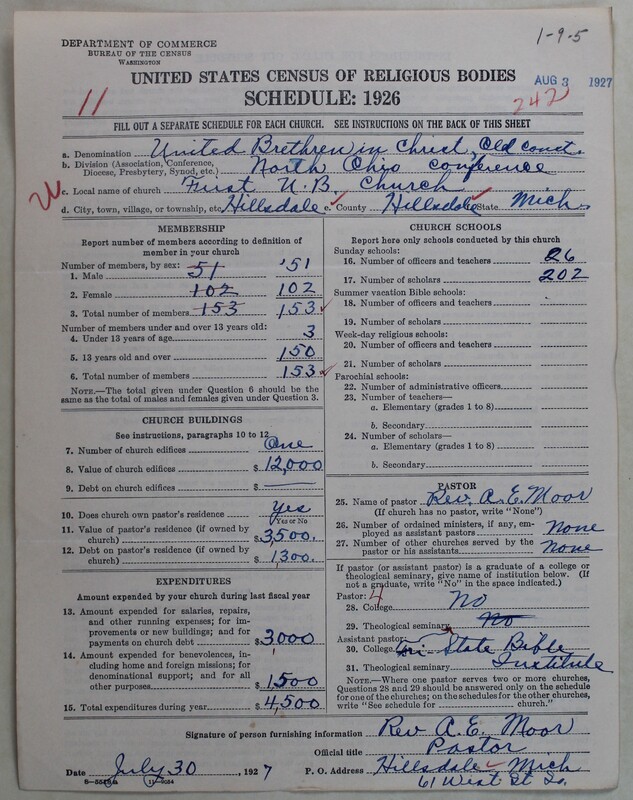 1-9-5
DEPARTMENT OF COMMERCE
BUREAU OF THE CENSUS
WASHINGTON
UNITED STATES CENSUS OF RELIGIOUS BODIES
AUG 3 1927
11
SCHEDULE: 1926
242
FILL OUT A SEPARATE SCHEDULE FOR EACH CHURCH. SEE INSTRUCTIONS ON THE BACK OF THIS SHEET
a. Denomination United Brethren in Christ Old Const.
b. Division (Association, Conference, Diocese, Presbytery, Synod, etc.) North Ohio Conference
c. Local name of church First U.B. Church
d. City, town, village, or township, etc. Hillsdale e. County Hillsdale State Mich.
MEMBERSHIP
Report number of members according to definition of member in your church
Number of members, by sex:
1. Male 51 51
2. Female 102 102
3. Total number of members 153 153
Number of members under and over 13 years old:
4. Under 13 years of age 3
5. 13 years old and over 150
6. Total number of members 153
NOTE.—The total given under Question 6 should be the same as the total of males and females given under Question 3.
CHURCH BUILDINGS
See instructions, paragraphs 10 to 12
7. Number of church edifices One
8. Value of church edifices $12,000
9. Debt on church edifices $
10. Does church own pastor's residence Yes
Yes or No
11. Value of pastor's residence (if owned by church) $3,500.
12. Debt on pastor's residence (if owned by church) 1,300.
EXPENDITURES
Amount expended by your church during last fiscal year
13. Amount expended for salaries, repairs, and other running expenses; for improvements or new buildings; and for payments on church debt $3,000
14. Amount expended for benevolences, including home and foreign missions; for denominational support; and for all other purposes $1,500
15. Total expenditures during year $4,500
CHURCH SCHOOLS
Report here only schools conducted by this church
Sunday schools:
16. Number of officers and teachers 26
17. Number of scholars 202
Summer vacation Bible schools:
18. Number of officers and teachers
19. Number of scholars
Week-day religious schools:
20. Number of officers and teachers
21. Number of scholars
Parochial schools:
22. Number of administrative officers
23. Number of teachers—
a. Elementary (grades 1 to 8)
b. Secondary
24. Number of scholars—
a. Elementary (grades 1 to 8)
b. Secondary
PASTOR
25. Name of pastor Rev. A. E. Moor
(If church has no pastor, write "None")
26. Number of ordained ministers, if any, employed as assistant pastors None
27. Number of other churches served by the pastor or his assistants None
If pastor (or assistant pastor) is a graduate of a college or theological seminary, give name of institution below. (If not a graduate, write "No" in the space indicated.)
Pastor: 4
28. College No
29. Theological seminary No
Assistant pastor:
30. College Tri State Bible
31. Theological seminary Institute
NOTE.—Where one pastor serves two or more churches, Questions 28 and 29 should be answered only on the schedule for one of the churches; on the schedules for the other churches, write "See schedule for church."
Signature of person furnishing information Rev A. E. Moor
Official title Pastor
Date July 30, 1927 P. O. Address Hillsdale Mich
61 West St So.